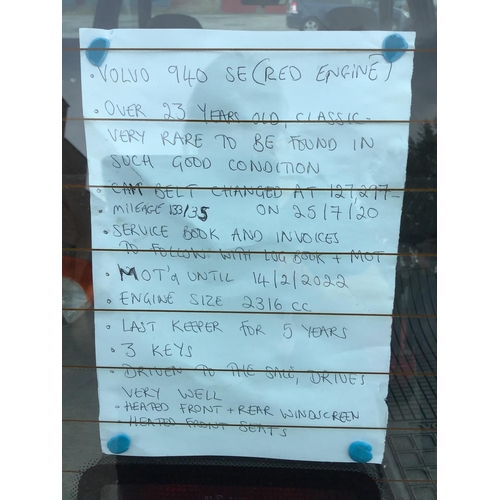 • VOLVO 940 SE (RED ENGINE)
• OVER 23 YEARS OLD, CLASSIC -
VERY RARE TO BE FOUND IN
SUCH GOOD CONDITION
• CAM BELT CHANGED AT 127,297 -
• MILEAGE 133/35 ON 25/7/20
• SERVICE BOOK AND INVOICES
TO FOLLOW WITH LOG BOOK + MOT
• MOT'd UNTIL 14/2/2022
• ENGINE SIZE 2316 CC
• LAST KEEPER FOR 5 YEARS
• 3 KEYS
• DRIVEN TO THE SALE, DRIVES
VERY WELL
• HEATED FRONT + REAR WINDSCREEN
• HEATED FRONT SEATS